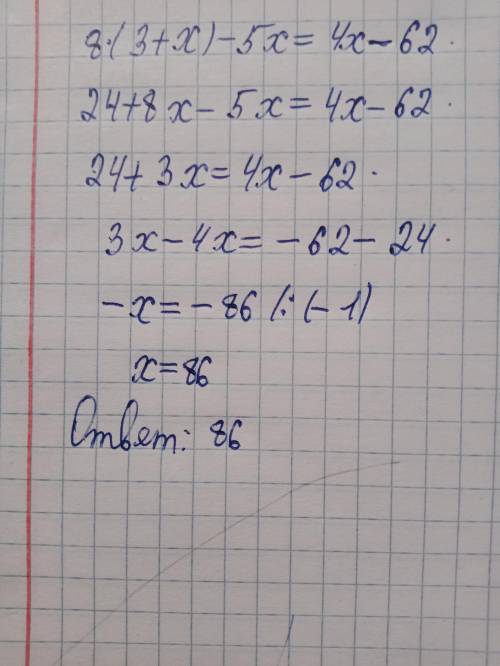 8·(3+x)-5x=4x-62.
24+8x-5x=4x-62.
24+3x=4x-62.
3x-4x=-62-24.
-x=-86 /:(-1)
x=86
Ответ: 86